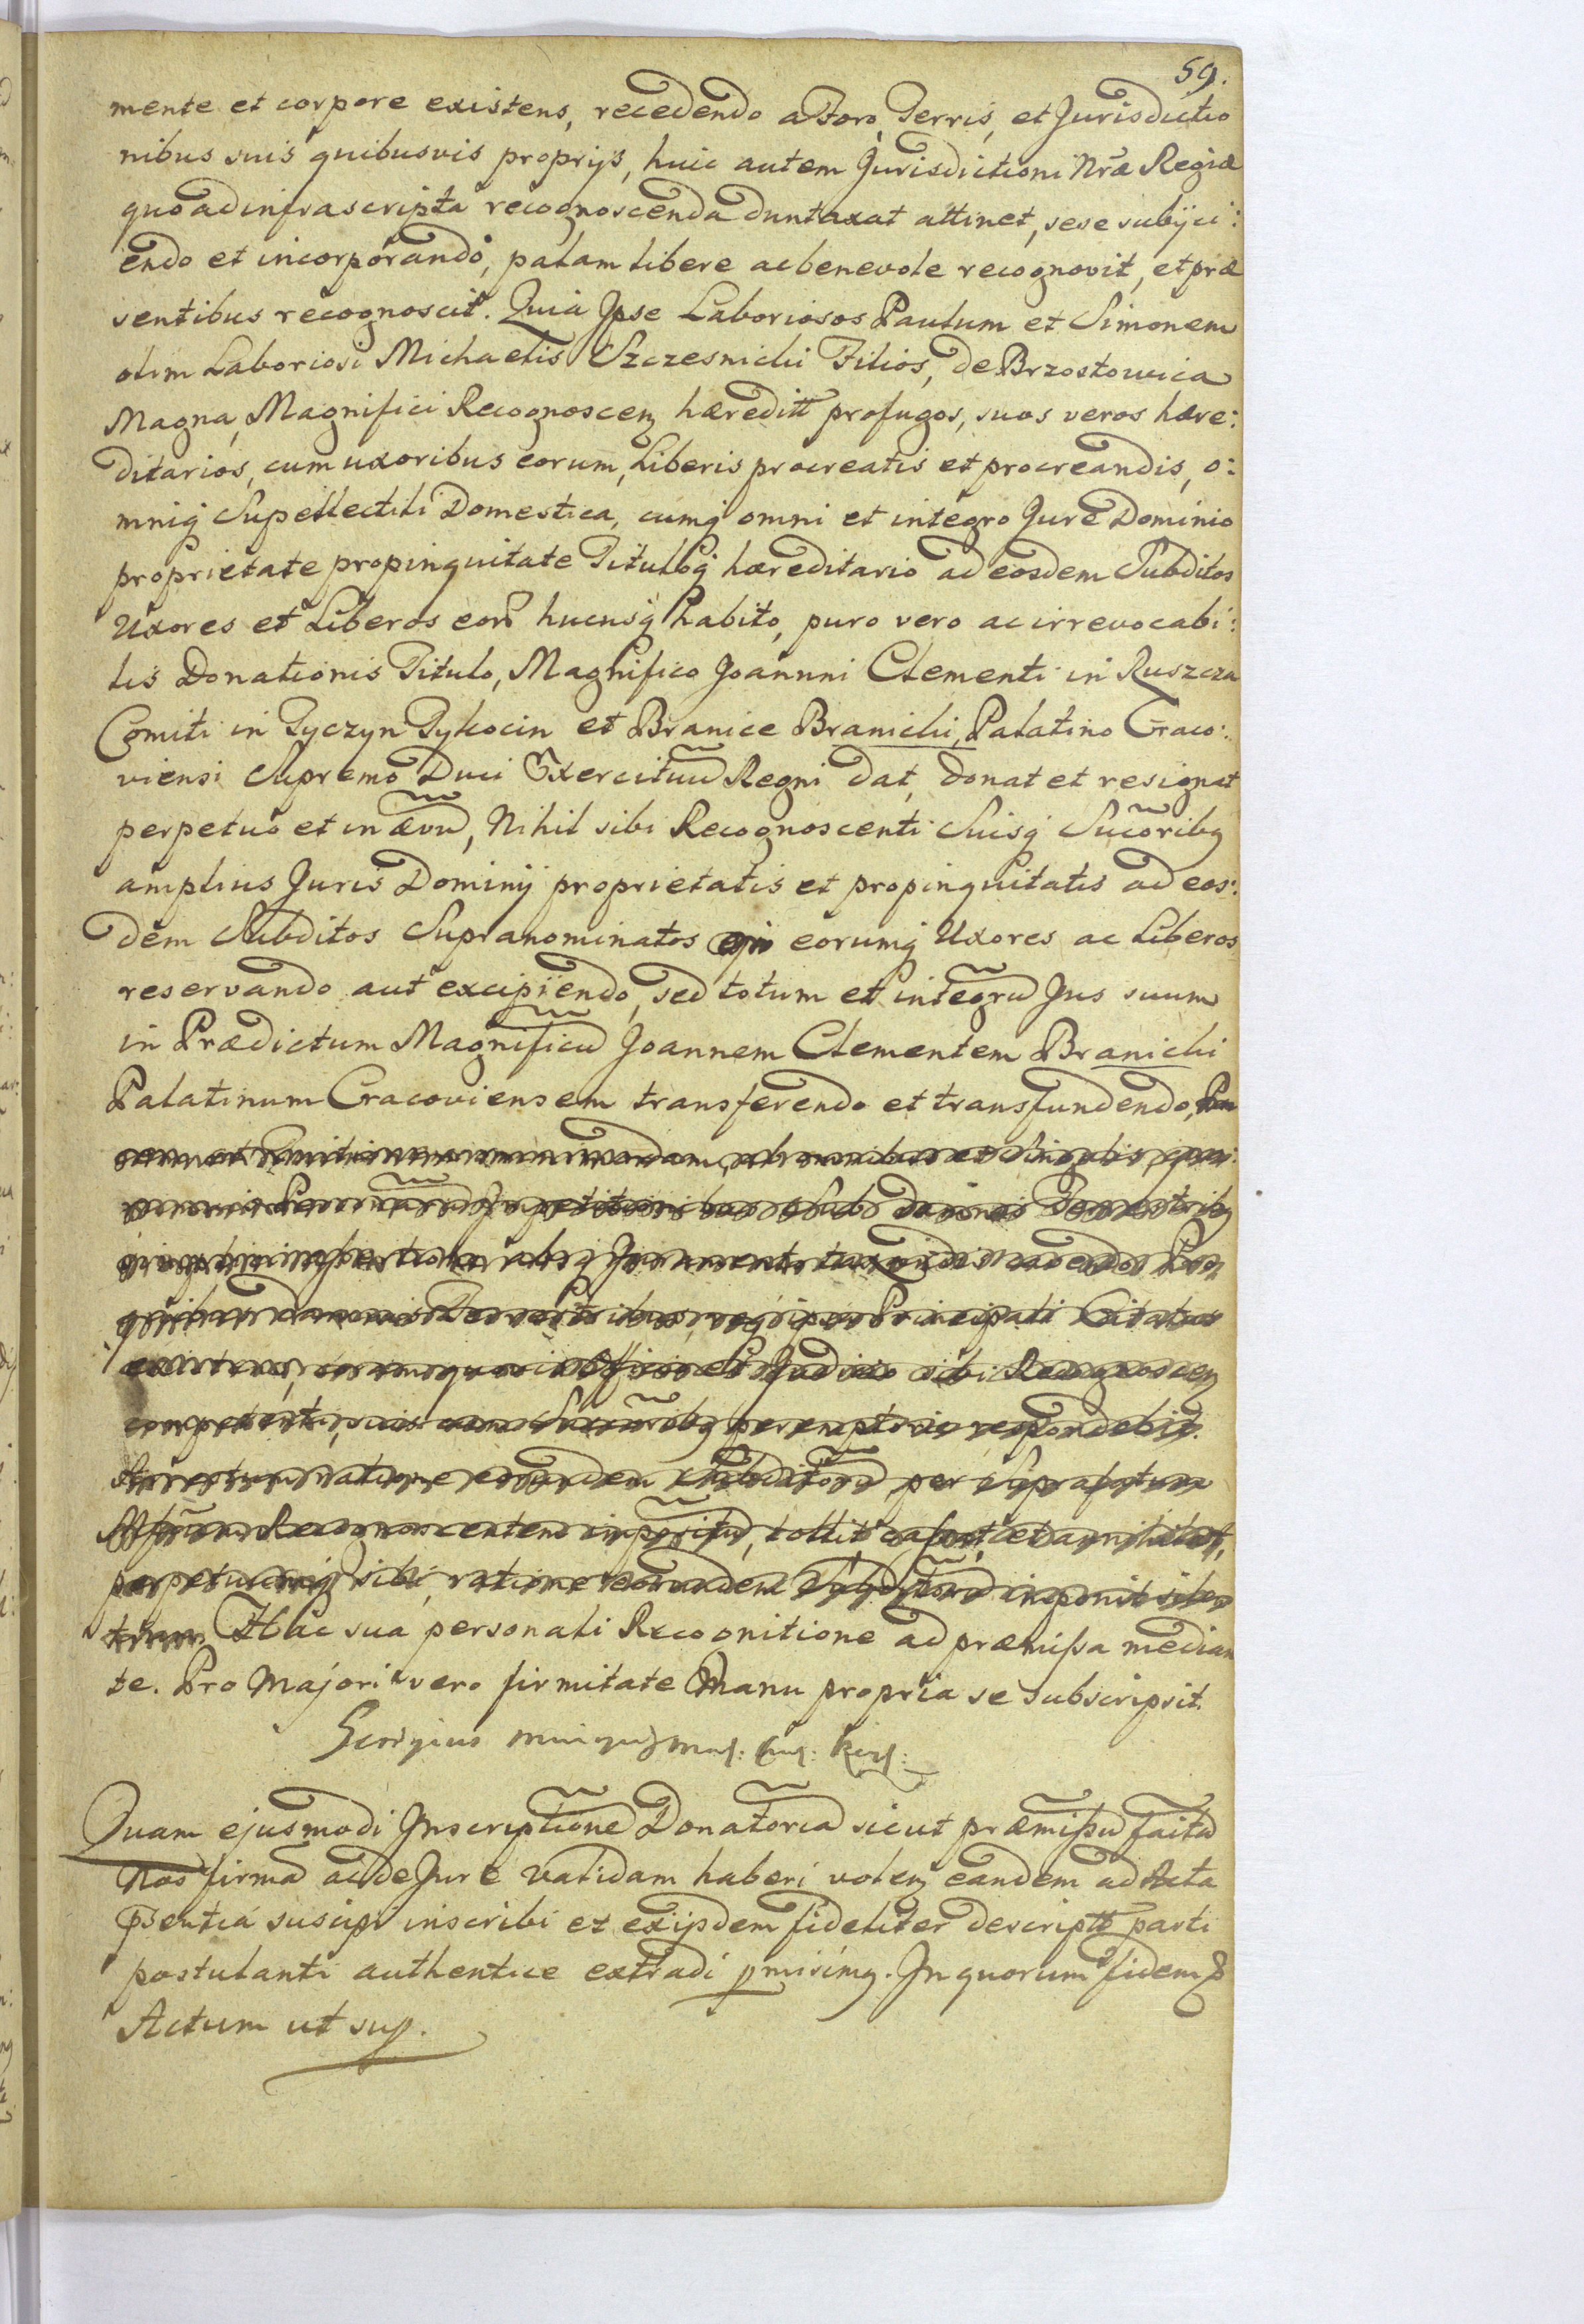 59.
mente et corpore existens, recedendo a Foro, Terris, et Jurisdictio
nibus suis quibusvis proprijs, huic autem Jurisdictioni Nræ Regiæ
quo ad infrascripta recognoscenda duntaxat attinet, sese subijci:
endo et incorporando, palam libere ac benevole recognovit, et præ
sentibus recognoscit. Quia Ipse Laboriosos Paulum et Simonem
olim Laboriosi Michaelis Szczesnicki Filios, de Brzostowica
Magna, Magnifici Recognoscen hæreditt profugos, suos veros hære:
ditarios, cum uxoribus eorum, Liberis procreatis et procreandis, o:
mniq Supellectili Domestica, cumq omni et integro Jure Dominio
proprietate propinquitate Tituloq hæreditario ad eosdem Subditos
Uxores et Liberos eorũ hucusq habito, puro vero ac irrevocabi:
lis Donationis Titulo, Magnifico Joannni Clementi in Ruszcza
Comiti in Tyczyn Tykocin et Branice Branicki, Palatino Craco:
viensi Supremo Duci Exercituũ Regni dat, donat et resignat
perpetuo et in ævũ, Nihil sibi Recognoscenti Suisq Sucõribq
amplius Juris Dominij proprietatis et propinquitatis ad eos:
dem Subditos Supranominatos eorumq Uxores ac Liberos
reservando aut excipiendo, sed totum et integrũ Jus suum
in Prædictum Magnificũ Joannem Clementem Branicki
Palatinum Cracoviensem transferendo et transfundendo,
quibus damnis Terrestribus, ipse Principali Citatus
existens, Officio et Judicio sibi Recognoscen
competenti, suis Succõribq peremptorie respondebit.
Arrestum ratione eorundem Subditorũ per Suprafatum
Mgfũm Recognoscentem impositũ, tollit, cassat, et annihilat,
perpetuumq sibi, ratione eorundem Subditorũ imponit silen
tium. Hac sua personali Recognitione ad præmissa median
te. Pro Majori vero firmitate Manu propria se subscripsit.
Quam ejusmodi Inscriptionẽ Donatoriã sicut præmissũ factã
Nos firmã ac de Jure validam haberi volen eandem ad Acta
psentia suscipi inscribi et ex ijsdem fideliter descriptt parti
postulanti authentice extradi pmisimq. In quorum fidem &
Actum ut sup.